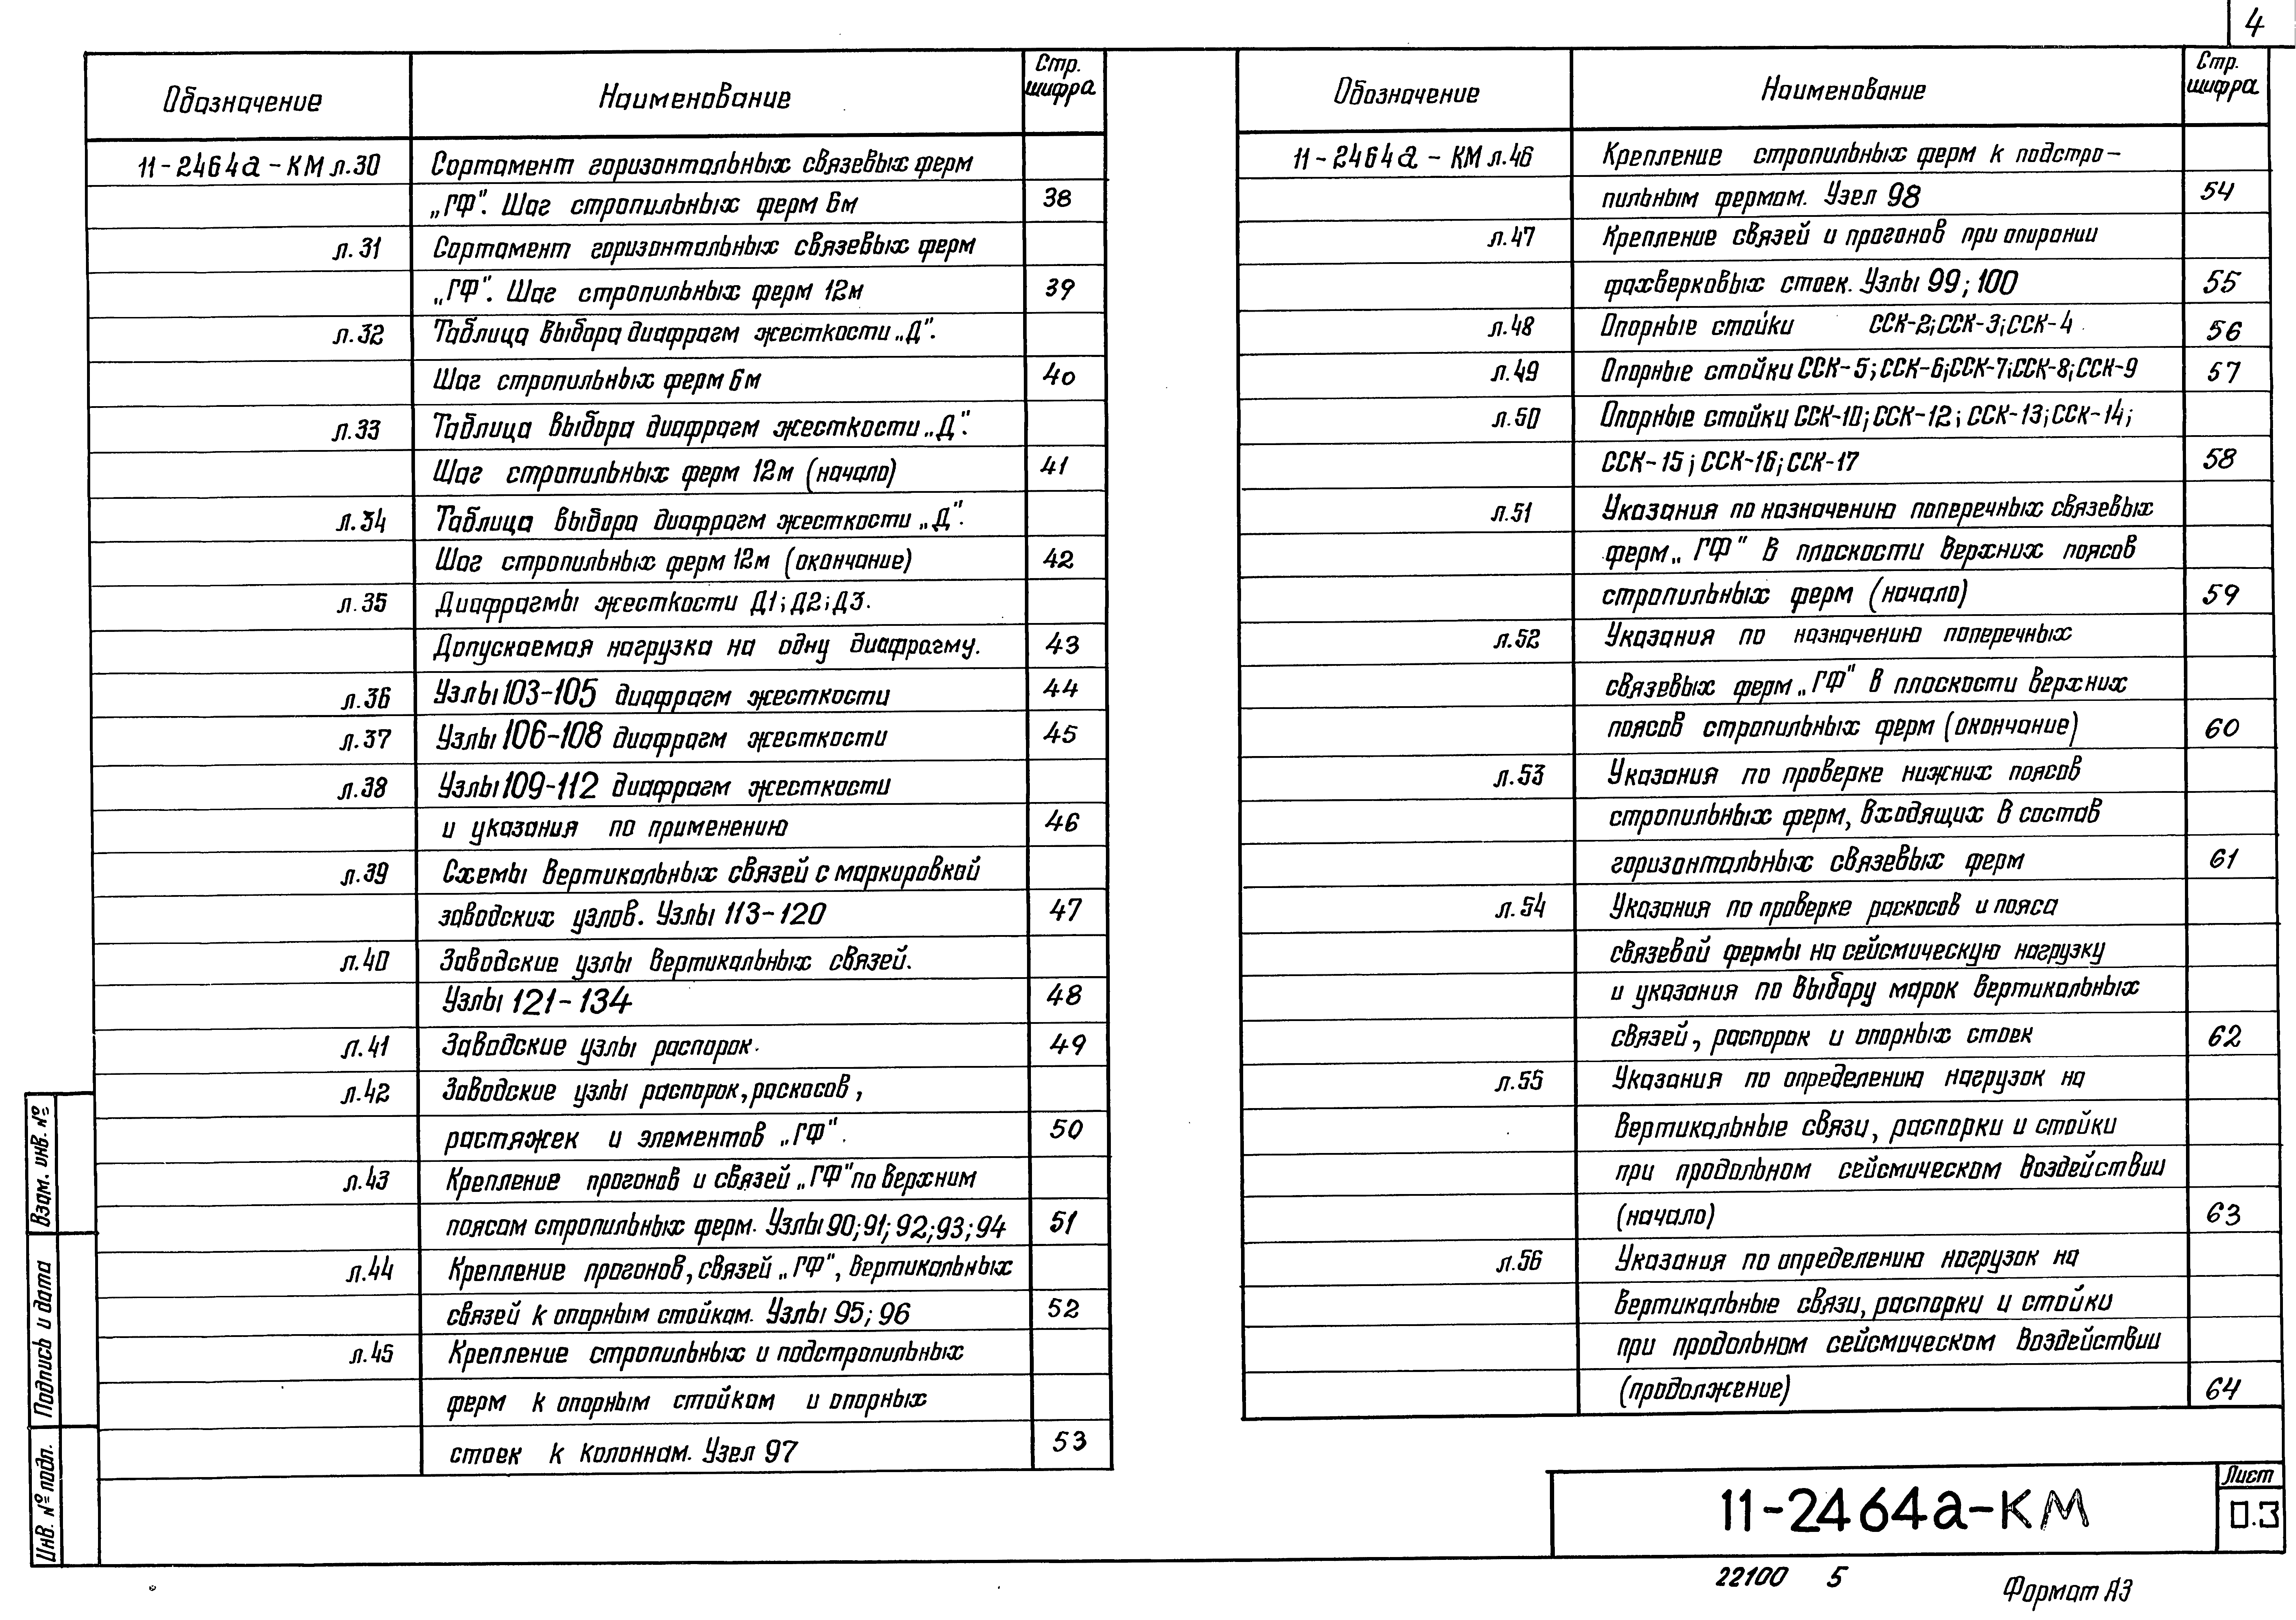 4
Обозначение Наименование Стр. шифра
11-2464а-КМ л.30 Сортамент горизонтальных связевых ферм
„ГФ". Шаг стропильных ферм 6м 38
л.31 Сортамент горизонтальных связевых ферм
„ГФ". Шаг стропильных ферм 12м 39
л.32 Таблица выбора диафрагм жесткости „Д".
Шаг стропильных ферм 6м 40
л.33 Таблица выбора диафрагм жесткости „Д".
Шаг стропильных ферм 12м (начало) 41
л.34 Таблица выбора диафрагм жесткости „Д".
Шаг стропильных ферм 12м (окончание) 42
л.35 Диафрагмы жесткости Д1; Д2; Д3.
Допускаемая нагрузка на одну диафрагму. 43
л.36 Узлы 103-105 диафрагм жесткости 44
л.37 Узлы 106-108 диафрагм жесткости 45
л.38 Узлы 109-112 диафрагм жесткости
и указания по применению 46
л.39 Схемы вертикальных связей с маркировкой
заводских узлов. Узлы 113-120 47
л.40 Заводские узлы вертикальных связей.
Узлы 121-134 48
л.41 Заводские узлы распорок. 49
л.42 Заводские узлы распорок, раскосов,
растяжек и элементов „ГФ". 50
л.43 Крепление прогонов и связей „ГФ" по верхним
поясам стропильных ферм. Узлы 90; 91; 92; 93; 94 51
л.44 Крепление прогонов, связей „ГФ", вертикальных
связей к опорным стойкам. Узлы 95; 96 52
л.45 Крепление стропильных и подстропильных
ферм к опорным стойкам и опорных
стоек к колоннам. Узел 97 53
Обозначение Наименование Стр. шифра
11-2464а-КМ л.46 Крепление стропильных ферм к подстро-
пильным фермам. Узел 98 54
л.47 Крепление связей и прогонов при опирании
фахверковых стоек. Узлы 99; 100 55
л.48 Опорные стойки ССК-2; ССК-3; ССК-4 56
л.49 Опорные стойки ССК-5; ССК-6; ССК-7; ССК-8; ССК-9 57
л.50 Опорные стойки ССК-10; ССК-12; ССК-13; ССК-14;
ССК-15; ССК-16; ССК-17 58
л.51 Указания по назначению поперечных связевых
ферм „ГФ" в плоскости верхних поясов
стропильных ферм (начало) 59
л.52 Указания по назначению поперечных
связевых ферм „ГФ" в плоскости верхних
поясов стропильных ферм (окончание) 60
л.53 Указания по проверке нижних поясов
стропильных ферм, входящих в состав
горизонтальных связевых ферм 61
л.54 Указания по проверке раскосов и пояса
связевой фермы на сейсмическую нагрузку
и указания по выбору марок вертикальных
связей, распорок и опорных стоек 62
л.55 Указания по определению нагрузок на
вертикальные связи, распорки и стойки
при продольном сейсмическом воздействии
(начало) 63
л.56 Указания по определению нагрузок на
вертикальные связи, распорки и стойки
при продольном сейсмическом воздействии
(продолжение) 64
Взам. инв. №
Подпись и дата
Инв. № подл.
11-2464а-КМ
Лист
0.3
22100 5
Формат А3